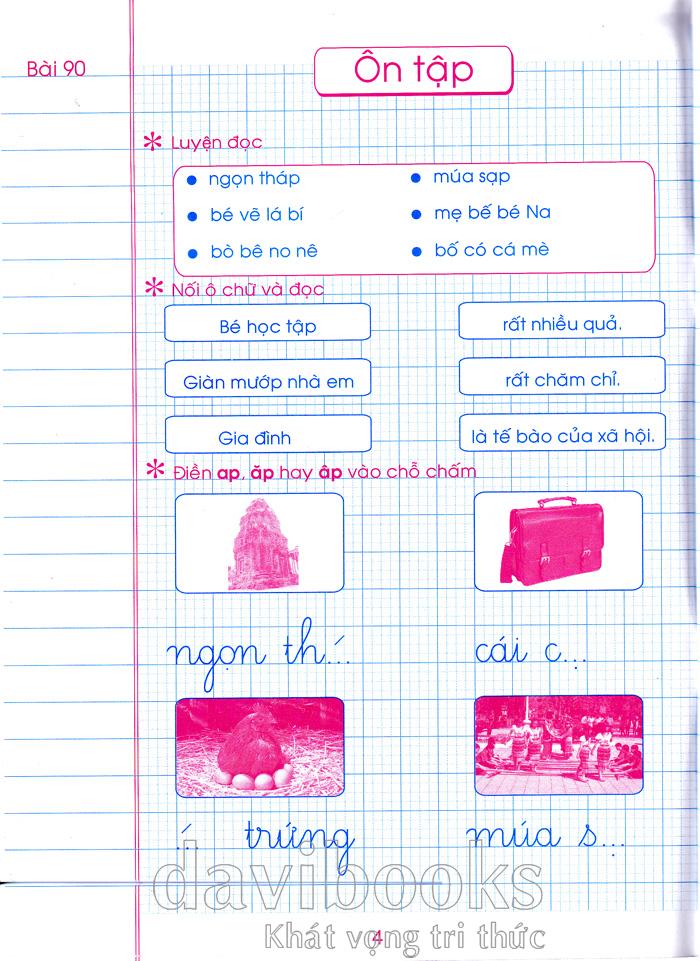 Bài 90
Ôn tập
* Luyện đọc
• ngọn tháp
• múa sạp
• bé vẽ lá bí
• mẹ bế bé Na
• bò bê no nê
• bố có cá mè
* Nối ô chữ và đọc
Bé học tập
rất nhiều quả.
Giàn mướp nhà em
rất chăm chỉ.
Gia đình
là tế bào của xã hội.
* Điền ap, ăp hay âp vào chỗ chấm
ngọn th...
cái c...
... trứng
múa s...
davibooks
Khát vọng tri thức
4